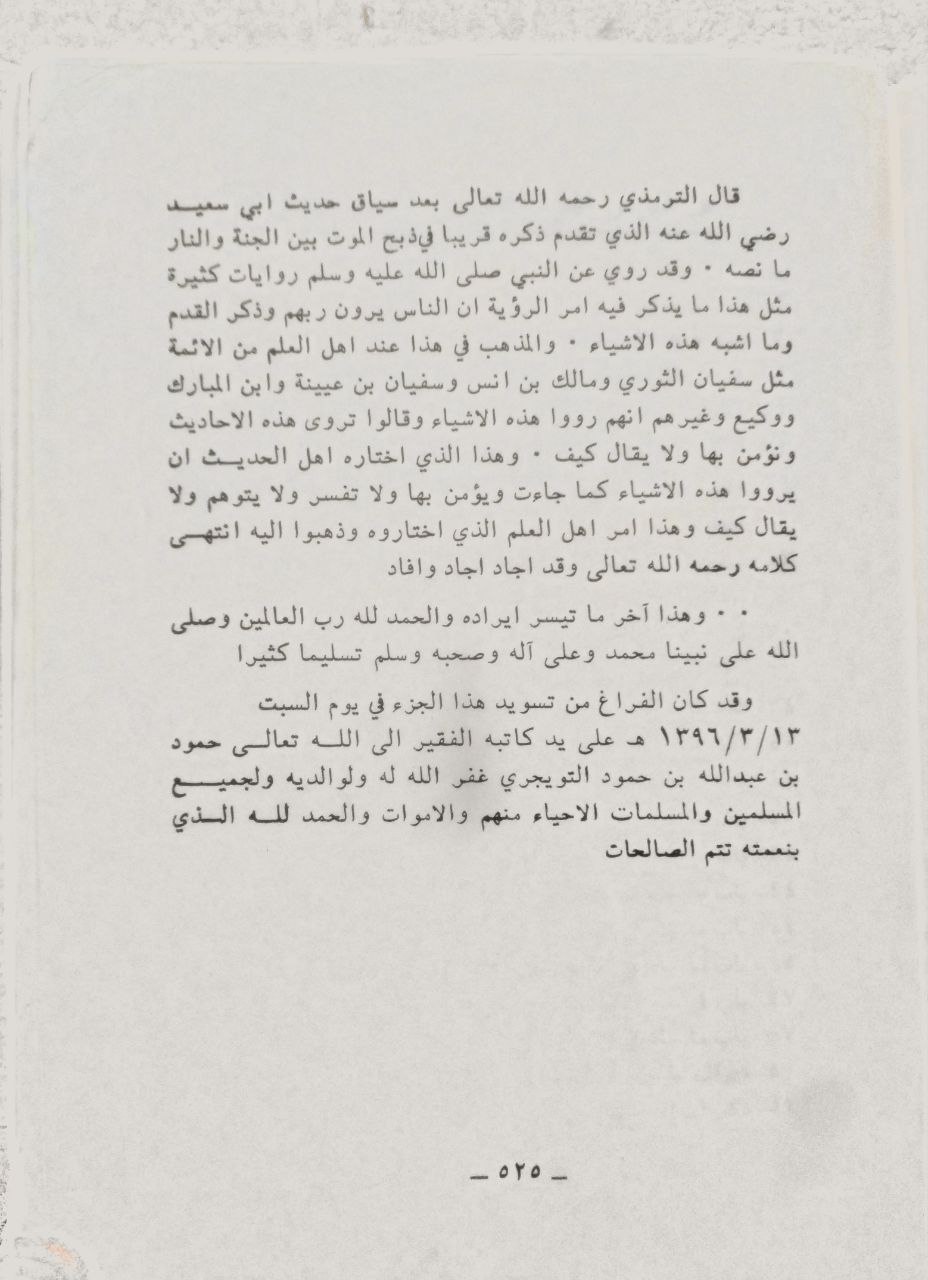 قال الترمذي رحمه الله تعالى بعد سياق حديث ابي سعيـد
رضي الله عنه الذي تقدم ذكره قريبا في ذبح الموت بين الجنة والنار
ما نصه ٠ وقد روي عن النبي صلى الله عليه وسلم روايات كثيرة
مثل هذا ما يذكر فيه امر الرؤية ان الناس يرون ربهم وذكر القدم
وما اشبه هذه الاشياء ٠ والمذهب في هذا عند اهل العلم من الائمة
مثل سفيان الثوري ومالك بن انس وسفيان بن عيينة وابن المبارك
ووكيع وغيرهم انهم رووا هذه الاشياء وقالوا تروى هذه الاحاديث
ونؤمن بها ولا يقال كيف ٠ وهذا الذي اختاره اهل الحديـث ان
يرووا هذه الاشياء كما جاءت ويؤمن بها ولا تفسر ولا يتوهم ولا
يقال كيف وهذا امر اهل العلم الذي اختاروه وذهبوا اليه انتهـى
كلامه رحمه الله تعالى وقد اجاد اجاد وافاد
٠ ٠ وهذا آخر ما تيسر ايراده والحمد لله رب العالمين وصلى
الله على نبينا محمد وعلى آله وصحبه وسلم تسليما كثيرا
وقد كان الفراغ من تسويد هذا الجزء في يوم السبت
١٣٩٦/٣/١٣ هـ على يد كاتبه الفقير الى اللـه تعالـى حمود
بن عبدالله بن حمود التويجري غفر الله له ولوالديه ولجميـع
المسلمين والمسلمات الاحياء منهم والاموات والحمد للـه الـذي
بنعمته تتم الصالحات
ــ ٥٢٥ ــ